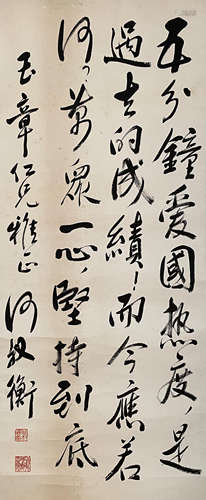 五分鐘愛國热度，是
過去的成績！而今應若
何，萬衆一心，堅持到底
玉章仁兄雅正 何叔衡